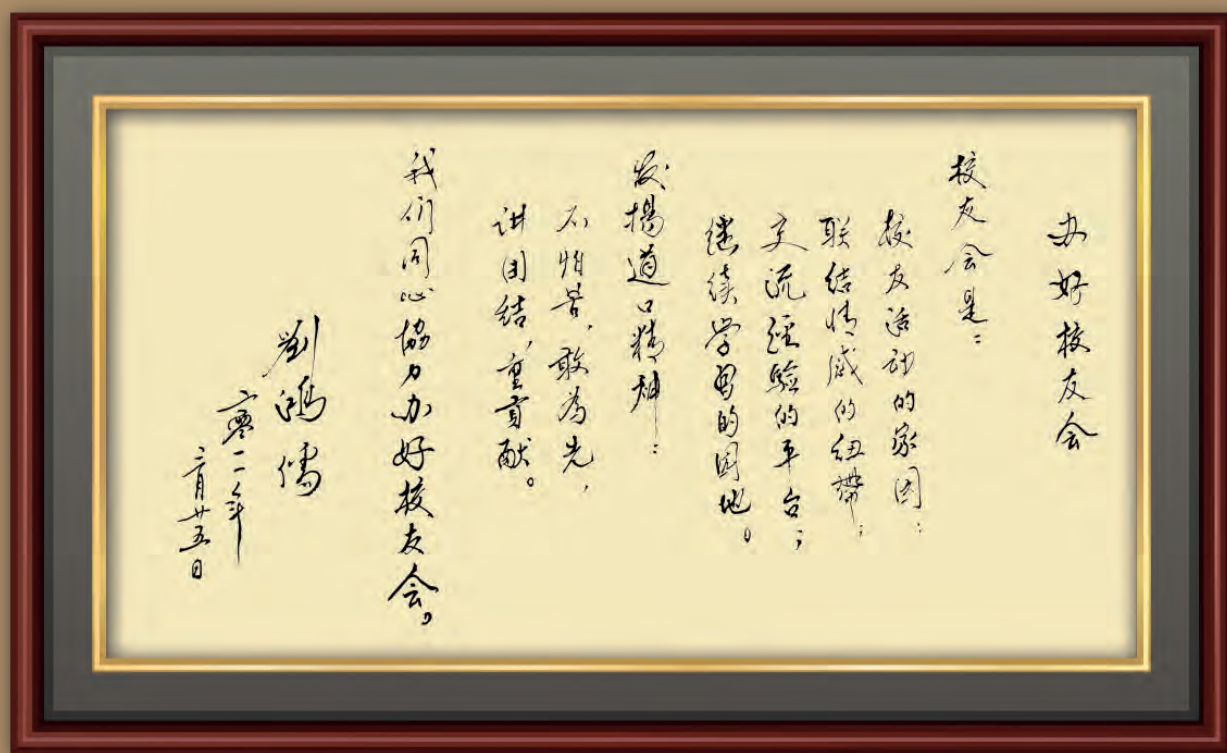 办好校友会
校友会是：
校友活动的家园；
联结情感的纽带；
交流经验的平台；
继续学习的园地。
发扬道口精神：
不怕苦，敢为先，
讲团结，重贡献。
我们同心协力办好校友会。
劉鴻儒
二零一一年
二月廿五日